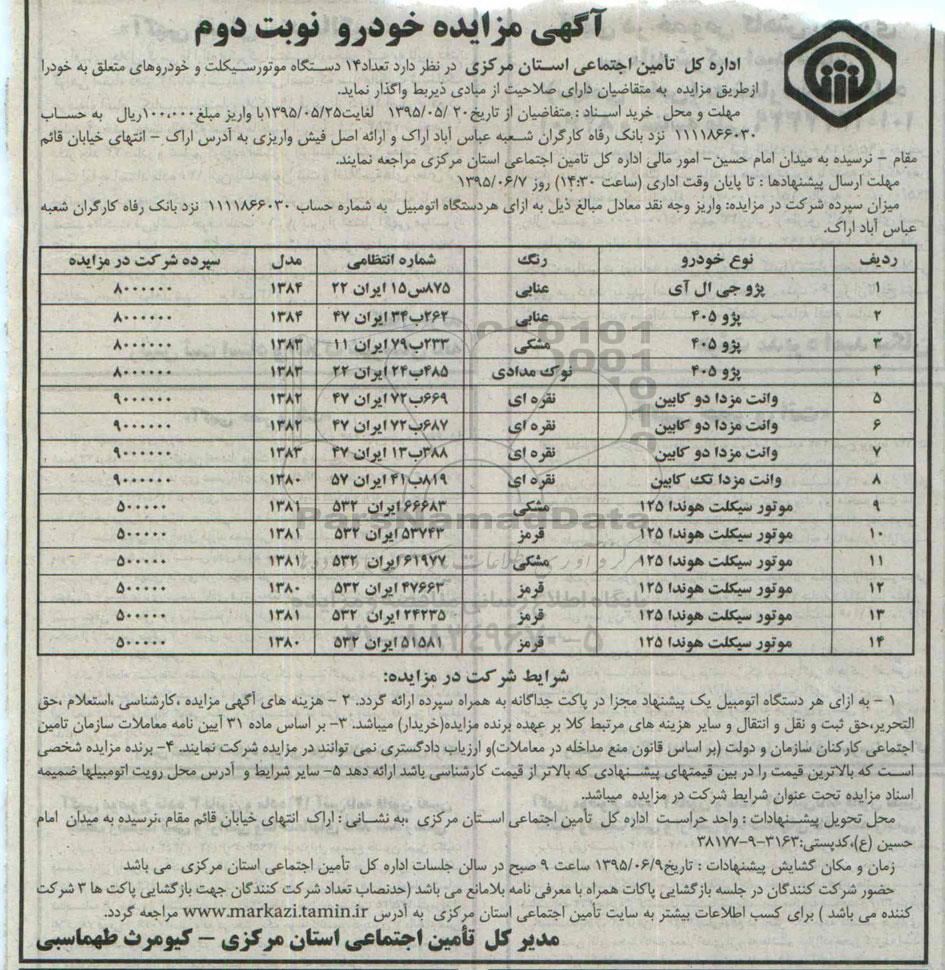 آگهی مزایده خودرو نوبت دوم
اداره کل تأمین اجتماعی استان مرکزی در نظر دارد تعداد۱۴ دستگاه موتورسیکلت و خودروهای متعلق به خودرا
ازطریق مزایده به متقاضیان دارای صلاحیت از مبادی ذیربط واگذار نماید.
مهلت و محل خرید اسناد : متقاضیان از تاریخ۲۰ /۱۳۹۵/۰۵ لغایت۱۳۹۵/۰۵/۲۵با واریز مبلغ۱۰۰،۰۰۰ریال به حساب
۱۱۱۱۸۶۶۰۳۰ نزد بانک رفاه کارگران شعبه عباس آباد اراک و ارائه اصل فیش واریزی به آدرس اراک – انتهای خیابان قائم
مقام – نرسیده به میدان امام حسین- امور مالی اداره کل تامین اجتماعی استان مرکزی مراجعه نمایند.
مهلت ارسال پیشنهادها : تا پایان وقت اداری (ساعت ۱۴:۳۰) روز ۱۳۹۵/۰۶/۷
میزان سپرده شرکت در مزایده: واریز وجه نقد معادل مبالغ ذیل به ازای هردستگاه اتومبیل به شماره حساب ۱۱۱۱۸۶۶۰۳۰ نزد بانک رفاه کارگران شعبه
عباس آباد اراک.
ردیف نوع خودرو رنگ شماره انتظامی مدل سپرده شرکت در مزایده
۱ پژو جی ال آی عنابی ۸۷۵س۱۵ ایران ۲۲ ۱۳۸۴ ۸۰۰۰۰۰۰
۲ پژو ۴۰۵ عنابی ۲۶۲ب۳۴ ایران ۴۷ ۱۳۸۴ ۸۰۰۰۰۰۰
۳ پژو ۴۰۵ مشکی ۲۳۳ب۷۹ ایران ۱۱ ۱۳۸۳ ۸۰۰۰۰۰۰
۴ پژو ۴۰۵ نوک مدادی ۴۸۵ب۲۴ ایران ۲۲ ۱۳۸۳ ۸۰۰۰۰۰۰
۵ وانت مزدا دو کابین نقره ای ۶۶۹ب۷۲ ایران ۴۷ ۱۳۸۲ ۹۰۰۰۰۰۰
۶ وانت مزدا دو کابین نقره ای ۶۸۷ب۷۲ ایران ۴۷ ۱۳۸۲ ۹۰۰۰۰۰۰
۷ وانت مزدا دو کابین نقره ای ۳۸۸ب۱۳ ایران ۴۷ ۱۳۸۳ ۹۰۰۰۰۰۰
۸ وانت مزدا تک کابین نقره ای ۸۱۹ب۴۱ ایران ۵۷ ۱۳۸۰ ۹۰۰۰۰۰۰
۹ موتور سیکلت هوندا ۱۲۵ مشکی ۶۶۶۸۳ ایران ۵۳۲ ۱۳۸۱ ۵۰۰۰۰۰
۱۰ موتور سیکلت هوندا ۱۲۵ قرمز ۵۳۷۴۳ ایران ۵۳۲ ۱۳۸۱ ۵۰۰۰۰۰
۱۱ موتور سیکلت هوندا ۱۲۵ مشکی ۶۱۹۷۷ ایران ۵۳۲ ۱۳۸۱ ۵۰۰۰۰۰
۱۲ موتور سیکلت هوندا ۱۲۵ قرمز ۴۷۶۶۳ ایران ۵۳۲ ۱۳۸۰ ۵۰۰۰۰۰
۱۳ موتور سیکلت هوندا ۱۲۵ قرمز ۲۴۲۳۵ ایران ۵۳۲ ۱۳۸۱ ۵۰۰۰۰۰
۱۴ موتور سیکلت هوندا ۱۲۵ قرمز ۵۱۵۸۱ ایران ۵۳۲ ۱۳۸۰ ۵۰۰۰۰۰
ParsNamadData
شرایط شرکت در مزایده:
۱ – به ازای هر دستگاه اتومبیل یک پیشنهاد مجزا در پاکت جداگانه به همراه سپرده ارائه گردد. ۲ – هزینه های آگهی مزایده ،کارشناسی ،استعلام ،حق
التحریر،حق ثبت و نقل و انتقال و سایر هزینه های مرتبط کلا بر عهده برنده مزایده(خریدار) میباشد. ۳- بر اساس ماده ۳۱ آیین نامه معاملات سازمان تامین
اجتماعی کارکنان سازمان و دولت (بر اساس قانون منع مداخله در معاملات)و ارزیاب دادگستری نمی توانند در مزایده شرکت نمایند. ۴- برنده مزایده شخصی
است که بالاترین قیمت را در بین قیمتهای پیشنهادی که بالاتر از قیمت کارشناسی باشد ارائه دهد ۵- سایر شرایط و آدرس محل رویت اتومبیلها ضمیمه
اسناد مزایده تحت عنوان شرایط شرکت در مزایده میباشد.
محل تحویل پیشنهادات : واحد حراست اداره کل تأمین اجتماعی استان مرکزی ،به نشانی : اراک انتهای خیابان قائم مقام ،نرسیده به میدان امام
حسین (ع)،کدپستی:۳۱۶۳-۹-۳۸۱۷۷
زمان و مکان گشایش پیشنهادات : تاریخ۱۳۹۵/۰۶/۹ ساعت ۹ صبح در سالن جلسات اداره کل تأمین اجتماعی استان مرکزی می باشد
حضور شرکت کنندگان در جلسه بازگشایی پاکات همراه با معرفی نامه بلامانع می باشد (حدنصاب تعداد شرکت کنندگان جهت بازگشایی پاکت ها ۳ شرکت
کننده می باشد ) برای کسب اطلاعات بیشتر به سایت تأمین اجتماعی استان مرکزی به آدرس www.markazi.tamin.ir مراجعه گردد.
مدیر کل تأمین اجتماعی استان مرکزی – کیومرث طهماسبی